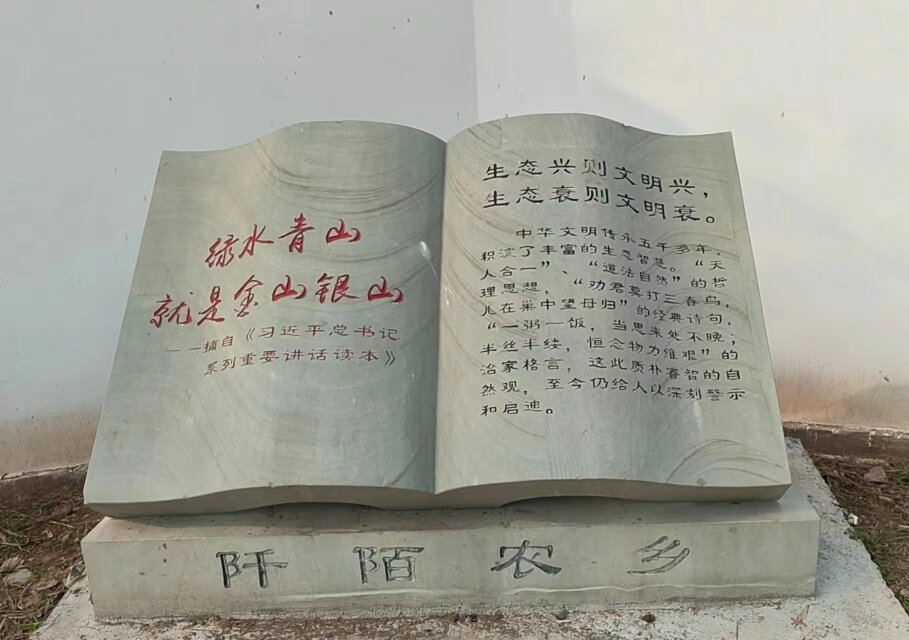 绿水青山
就是金山银山
——摘自《习近平总书记
系列重要讲话读本》
生态兴则文明兴，
生态衰则文明衰。
中华文明传承五千多年，
积淀了丰富的生态智慧。“天
人合一”、“道法自然”的哲
理思想，“劝君莫打三春鸟，
儿在巢中望母归”的经典诗句，
“一粥一饭，当思来处不晚；
半丝半缕，恒念物力维艰”的
治家格言，这此质朴睿智的自
然观，至今仍给人以深刻警示
和启迪。
阡陌农乡